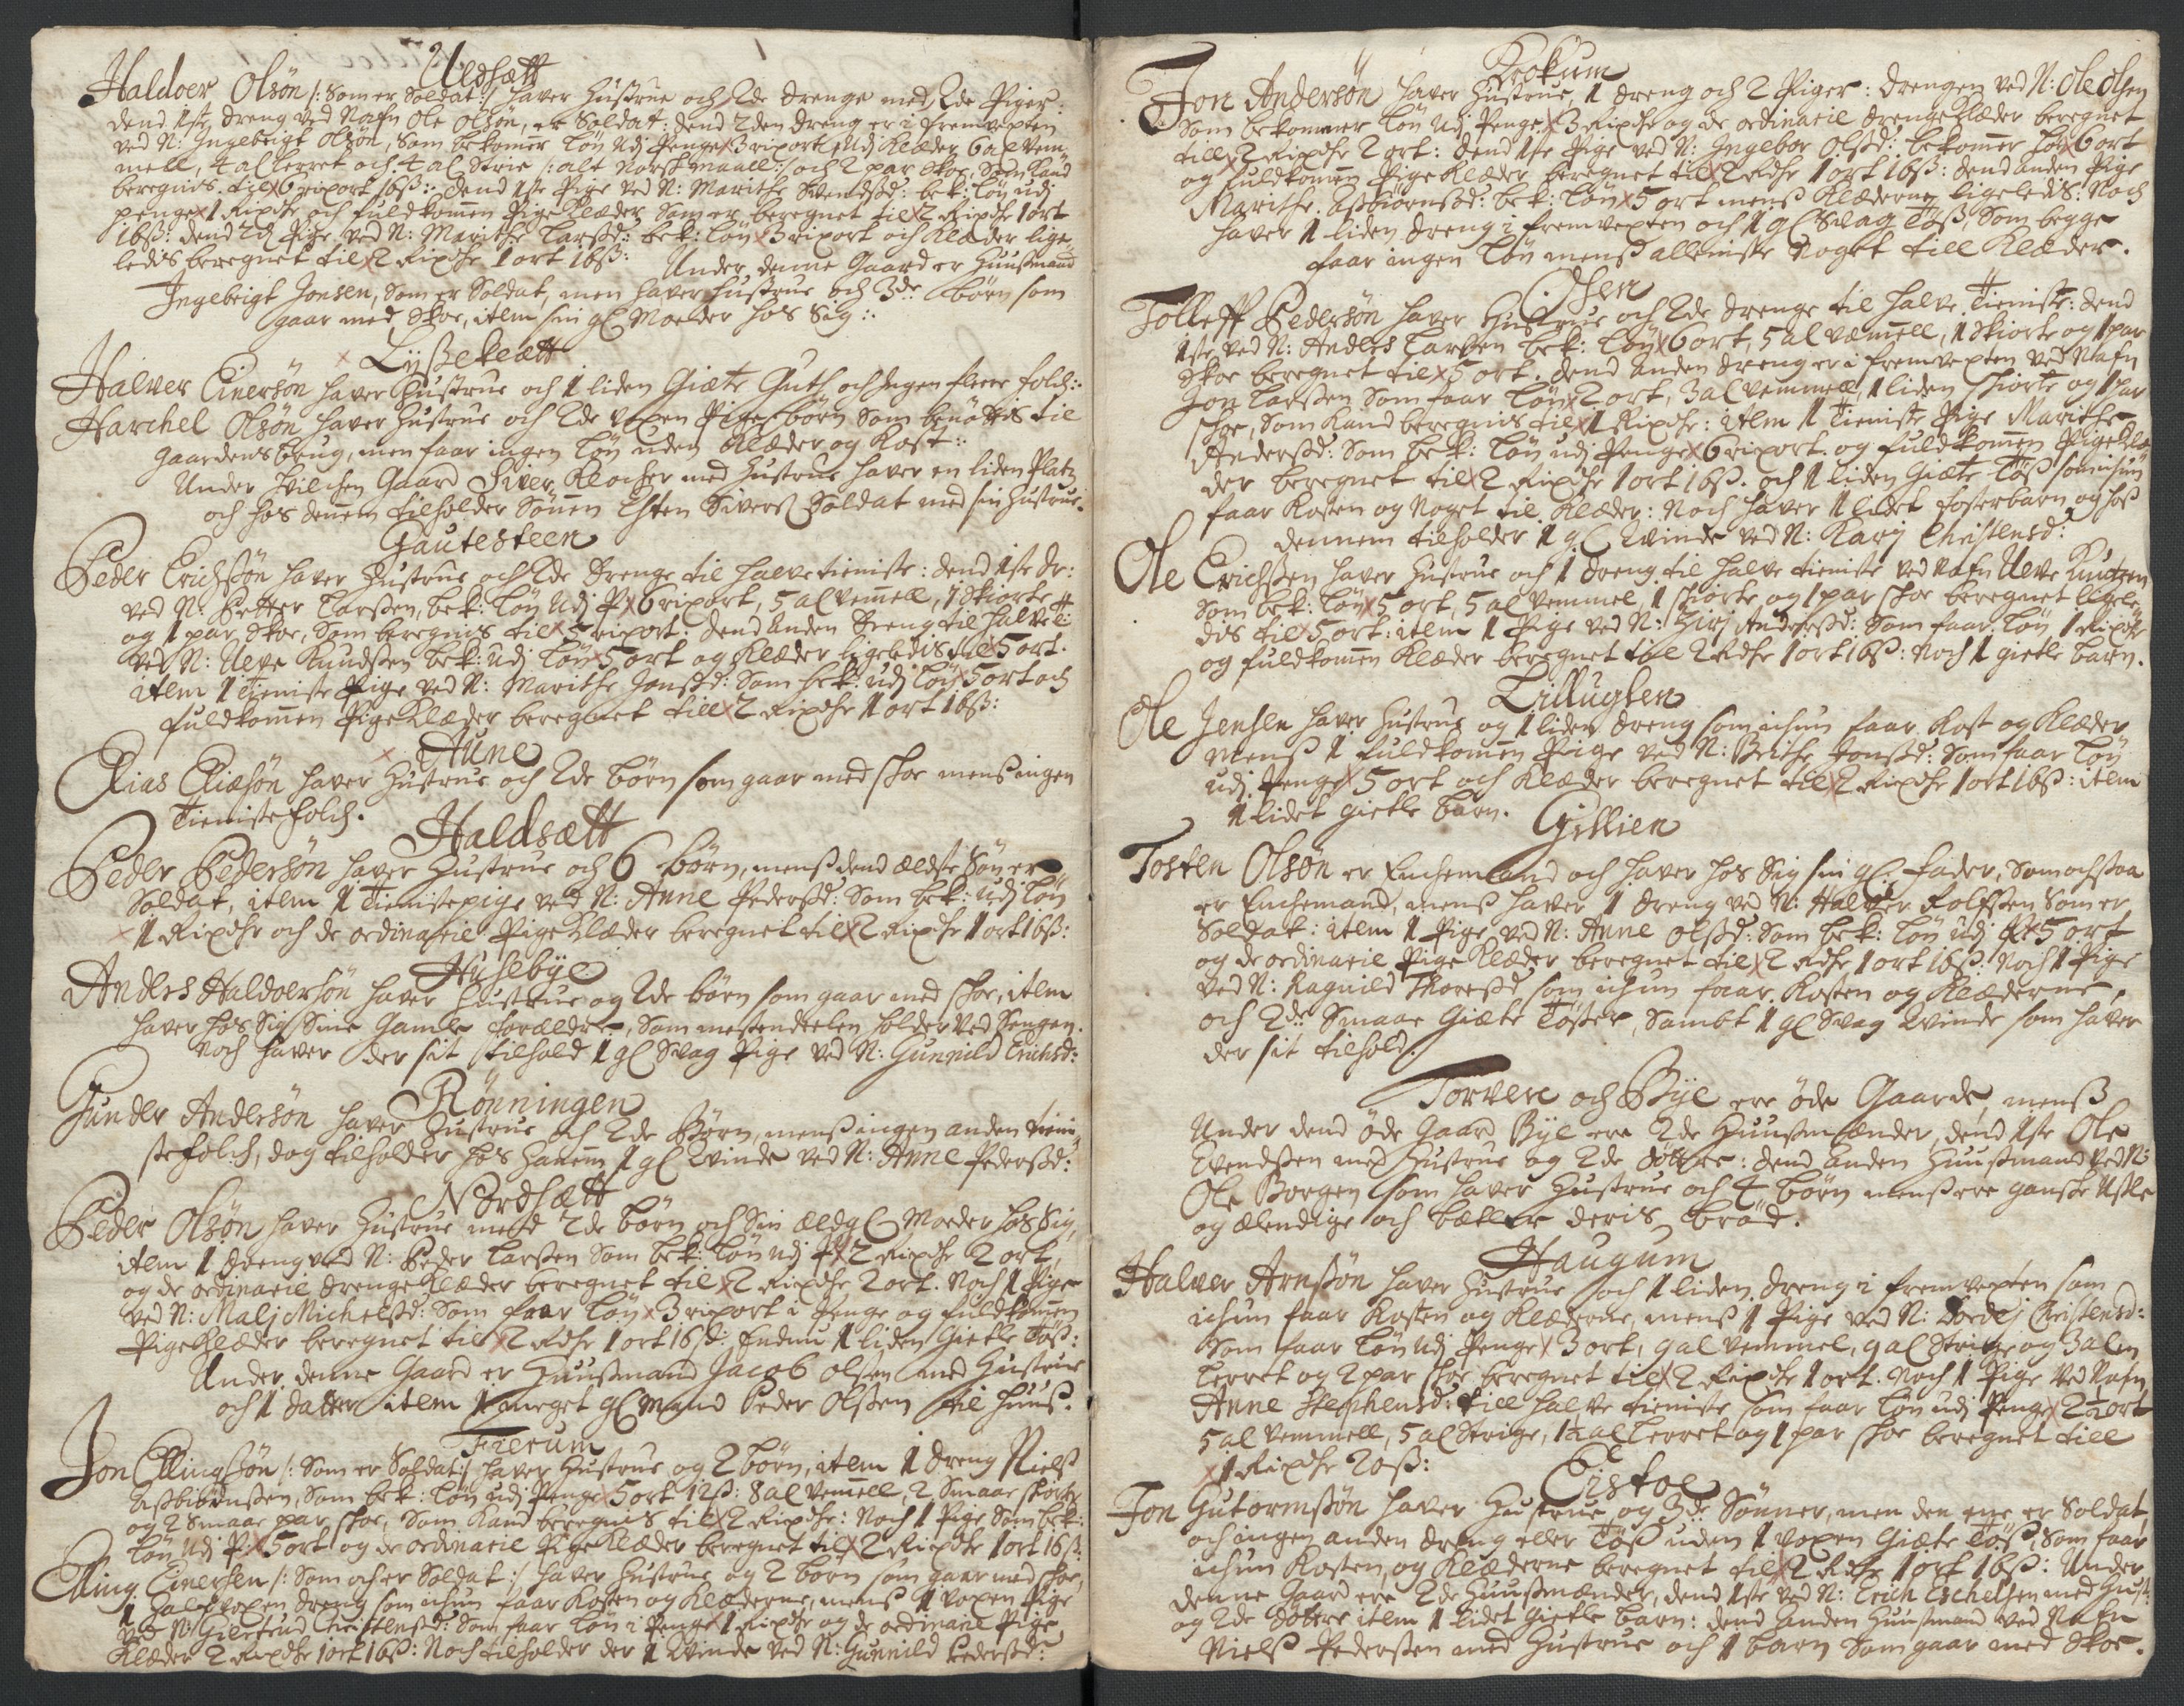 Uldsætt
Haldoer Olsøn /: Som er Soldat :/ haver Hustrue och 2de drenge med 2de Piger:
dend 1ste dreng ved Nafn Ole Olsøn, er Soldat: dend 2den dreng er i fremvexten
ved N: Ingebrigt Olsøn, Som bekomer Løn Udj Penge 3 rixort, Udj Klæder 6 al vem-
mell, 4 al lerret och 4 al Strie /: alt Norsk maall :/ och 2 par Skoe, Som Kand
beregnis til 6 rixort 16ß: dend 1ste Pige ved N: Marithe Svendsd: bek: Løn udj
penge 1 Rixdlr och fuldkomen Pige Klæder Som er beregnet til 2 Rixdlr 1 ort
16ß: dend 2d Pige ved N: Marithe Larsd: bek: Løn 3 rixort och Klæder lige-
ledis beregnet til 2 Rixdlr 1 ort 16ß: Under denne Gaard er Huusmand
Ingebrigt Jonsen, Som er Soldat, men haver hustrue och 3de børn som
gaar med Skoe, item sin gl Moeder hos Sig:
Lyßeklætt
Halver Einersøn haver Hustrue och 1 liden Giæte Guth och Ingen flere folch:
Harchel Olsøn haver Hustrue och 2de Voxen Piger børn Som benøttis til
Gaardens brug, men faar ingen Løn uden Klæder og Kost:
Under hvilchen Gaard Siver Klocher med Hustrue haver en liden Platz
och hos dennem tilholder Sønnen Esten Siverß Soldat med sin Hustrue.
Gautesteen
Peder Erichssøn haver Hustrue och 2de Drenge til halve tieniste: dend 1ste dr:
ved N: Petter Larßen, bek: Løn Udj P 6 rixort, 5 al vemell, 1 Skiorte
og 1 par Skoe, Som beregnis til 5 rixort: dend Anden dreng til halve ti:
ved N: Ulve Knudßen bek: udj Løn 5 ort og Klæder ligeledis til 5 ort.
item 1 Tieniste Pige ved N: Marithe Jonsd: Som bek: udj Løn 5 ort och
fuldkomen Pige Klæder beregnet till 2 Rixdlr 1 ort 16ß:
Aune
Elias Eliæsøn haver Hustrue och 2de børn som gaar med skoe menß ingen
Tienistefolch.
Haldsætt
Peder Pedersøn haver Hustrue och 6 børn, menß dend ældste Søn er
Soldat, item 1 Tienistepige ved N: Anne Pedersd: Som bek: udj Løn
1 Rixdlr och de ordinarie Pige Klæder beregnet til 2 Rixdlr 1 ort 16ß:
Huseby
Anders Haldoersøn haver Hustrue og 2de børn som gaar med skoe, item
haver hos Sig Sine Gamle forældre, Som mestendeelen holder Ved Sengen.
Noch haver der sit tilhold 1 gl Svag Pige ved N: Gunnild Erichsd:
Rønningen
Gunder Andersøn haver Hustrue och 2de Børn, menß ingen anden tieni-
stefolch, dog tilholder hos hanem 1 gl Qvinde ved N: Anne Pedersd:
Nordsætt
Peder Olsøn haver Hustrue med 2de børn och Sin ældgl Moeder hos Sig,
item 1 dreng ved N: Peder Larßen Som bek: Løn Udj P 2 Rixdlr 2 ort
og de ordinarie drenge Klæder beregnet til 2 Rixdlr 2 ort. Noch 1 Pige
ved N: Malj Michelsd: Som faar Løn 3 rixort i Penge og fuldkomen
Pige Klæder beregnet til 2 Rdlr 1 ort 16ß: Endnu 1 liden Gietle Tøß:
Under denne Gaard er Huusmand Jacob Olsen med Hustrue
och 1 datter item 1 meget gl Mand Peder Olsen til huus.
Fierum
Jon Ellingssøn /: Som er Soldat :/ haver Hustrue og 2 børn, item 1 dreng Nielß
Asbiørnßen, Som bek: Løn udj Penge 5 ort 12ß: 8 al Vemell, 2 Smaae skiorter
og 2 Smaae par skoe, Som Kand beregnis til 2 Rixdlr: Noch 1 Pige Som bek:
Løn Udj P: 5 ort og de ordinarie Pige Klæder beregnet til 2 Rixdlr 1 ort 16ß:
Elling Einersen /: Som och er Soldat :/ haver Hustrue og 2 børn som gaar med skoe,
1 halfvoxen dreng som ichun faar Kosten og Klæderne, menß 1 voxen Pige
ved N: Giertrud Christensd: Som faar Løn i Penge 1 Rixdlr og de ordinarie Pige
Klæder 2 Rixdlr 1 ort 16ß: Noch tilholder der 1 Qvinde ved N: Gunnild Pedersd:
Krokum
Jon Andersøn haver Hustrue, 1 dreng och 2 Piger: drengen ved N: Ole Olsen
Som bekommer Løn Udj Penge 3 Rixdlr og de ordinarie drenge Klæder beregnet
till 2 Rixdlr 2 ort: dend 1ste Pige ved N: Ingebor Olsd: bekomer Løn 6 ort
og fuldkomen Pige Klæder beregnet til 2 Rdlr 1 ort 16ß: dend anden Pige
Marithe Asbiørnsd: bek: Løn 5 ort menß Klæderne ligeledis: Noch
haver 1 liden dreng i fremvexten och 1 gl Svag Tøß, Som begge
faar ingen Løn menß alleniste noget till Klæder.
Osen
Tolleff Pedersøn haver Hustrue och 2de drenge til halve Tieniste: dend
1ste ved N: Anders Larßen bek: Løn 6 ort, 5 al vemell, 1 skiorte og 1 par
skoe beregnet til 5 ort. dend anden dreng er i fremvexten ved Nafn
Jon Larßen Som faar Løn 2 ort, 3 al Vemmell, 1 liden skiorte og 1 par
skoe, Som Kand beregnis til 1 Rixdlr: item 1 Tieniste Pige Marithe
Andersd: Som bek: Løn udj Penge 6 rixort og fuldkomen Pige Klæ-
der beregnet til 2 Rixdlr 1 ort 16ß. och 1 liden Giæte Tøß som ichun
faar Kosten og Noget til Klæder: Noch haver 1 lidet fosterbarn og hos
dennem tilholder 1 gl Qvinde ved N: Karj Christensd:
Ole Erichsen haver Hustrue och 1 dreng til halve tieniste ved Nafn Ulve Knutzen
Som bek: Løn 5 ort, 5 al vemmel, 1 skiorte og 1 par skoe beregnet ligele-
dis til 5 ort: item 1 Pige ved N: Zirj Andersd: Som faar Løn 1 Rixdlr
og fuldkomen Klæder beregnet til 2 Rdlr 1 ort 16ß: Noch 1 gietle barn.
Lillugsen
Ole Jensen haver Hustrue og 1 liden dreng som ichun faar Kost og Klæder
menß 1 fuldkomen Pige ved N: Brithe Jonsd: Som faar Løn
udj Penge 5 ort och Klæder beregnet til 2 Rixdlr 1 ort 16ß: item
1 lidet gietle barn.
Grillien
Tosten Olsøn er Enchemand och haver hos Sig sin gl: fader, Som ochsaa
er Enchemand, menß haver 1 dreng ved N: Halver Rolfsen Som er
Soldat: item 1 Pige ved N: Anne Olsd: Som bek: Løn udj P 5 ort
og de ordinarie Pige Klæder beregnet til 2 Rdlr 1 ort 16ß: Noch 1 Pige
ved N: Ragnild Thoresd som ichun faar Kosten og Klæderne,
och 2de Smaae Giæte Tøßer, Sambt 1 gl Svag Qvinde som haver
der sit tilhold.
Torven och Bye ere øde Gaarde, menß
Under dend øde Gaard Bye ere 2de Huusmænder, dend 1ste Ole
Svendßen med Hustrue og 2de døttre: dend anden Huusmand ved N:
Ole Borgen som haver Hustrue och 4 børn menß ere ganske Usle
og elendige och betler deris brød.
Haugum
Halver Arnssøn haver Hustrue och 1 liden dreng i fremvexten som
ichun faar Kosten og Klæderne, menß 1 Pige ved N: Dordej Christensd:
Som faar Løn Udj Penge 3 ort, 9 al Vemmel, 9 al Strige og 3 alen
Lerret og 2 par skoe beregnet til 2 Rixdlr 1 ort. Noch 1 Pige ved Nafn
Anne Stephensd: till halve tieniste som faar Løn udj Penge 2½ ort
5 al Vemmell, 5 al Strige, 1½ al Lerret og 1 par skoe beregnet till
1 Rixdlr 20ß:
Eistoe
Jon Gutormssøn haver Hustrue, og 3de Sønner, men den ene er Soldat,
och ingen anden dreng eller Tøß uden 1 voxen Giæte Tøß, Som faar
ichun Kosten og Klæderne beregnet til 2 Rdlr 1 ort 16ß: Under
denne Gaard ere 2de Huusmænder, dend 1ste ved N: Erich Eschelsen med Hust:
og 2de døttre item 1 lidet gietle barn: dend anden Huusmand ved Nafn
Nielß Pederßen med Hustrue och 1 barn Som gaar med Skoe.